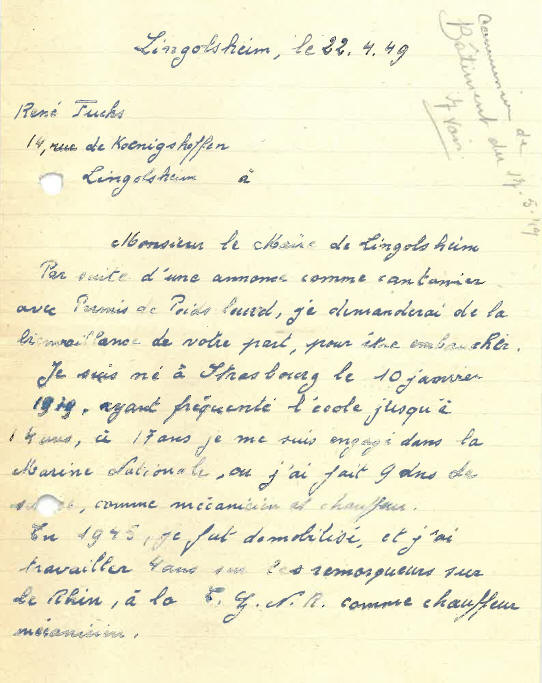 Lingolsheim, le 22.4.49
Commission de
Bâtiment du 17.5.49
René Fuchs
14, rue de Koenigshoffen
Lingolsheim à
Monsieur le Maire de Lingolsheim
Par suite d'une annonce comme cantonier
avec Permis de Poids lourd, je demanderai de la
bienveillance de votre part, pour être embaucher.
Je suis né à Strasbourg le 10 janvier
1919, ayant fréquenté l'école jusqu'à
14 ans, à 17 ans je me suis engagé dans la
Marine Nationale, ou j'ai fait 9 ans de
comme mécanicien et chauffeur.
En 1945, je fut demobilisé, et j'ai
travailler 4 ans sur les remorqueurs sur
le Rhin, à la C. G. N. R. comme chauffeur
mécanicien.